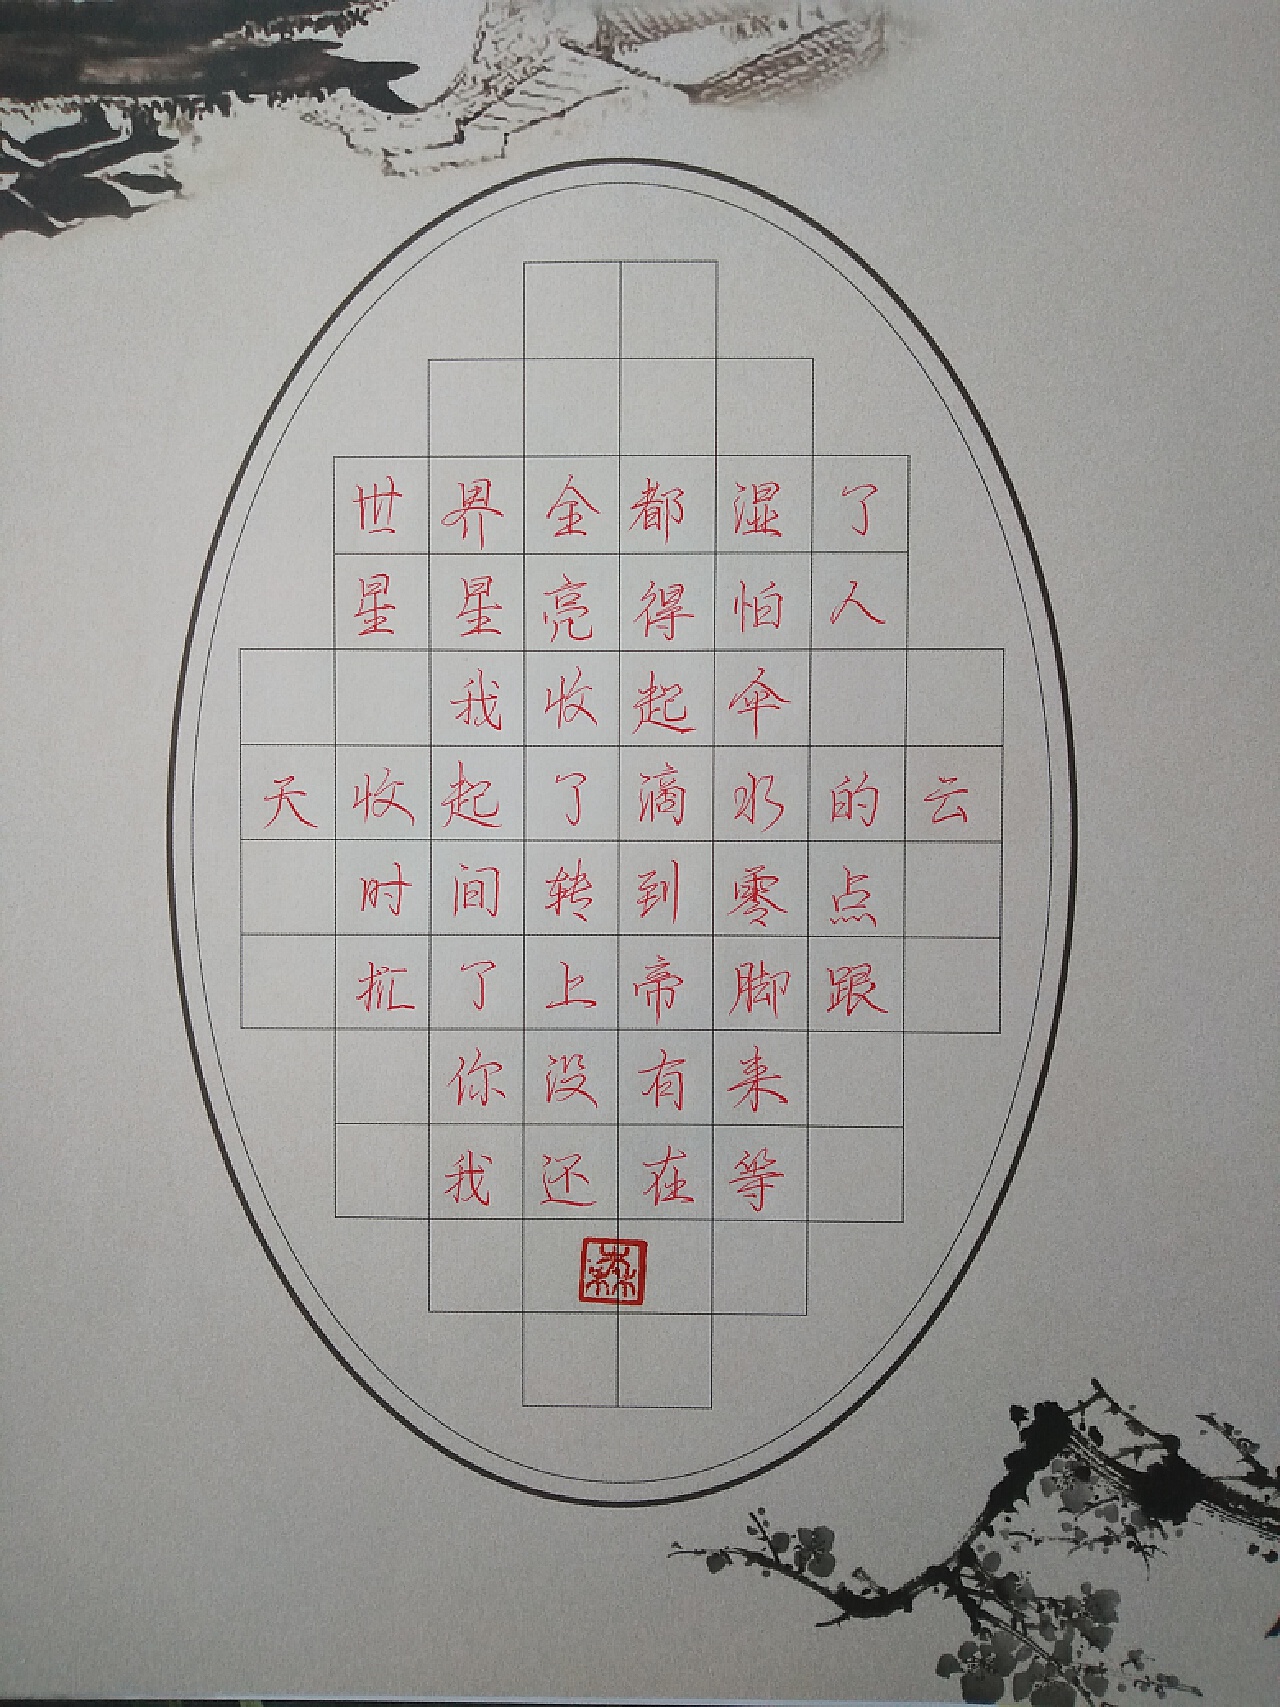 世界全都湿了
星星亮得怕人
我收起伞
天收起了滴水的云
时间转到零点
扰了上帝脚跟
你没有来
我还在等
森